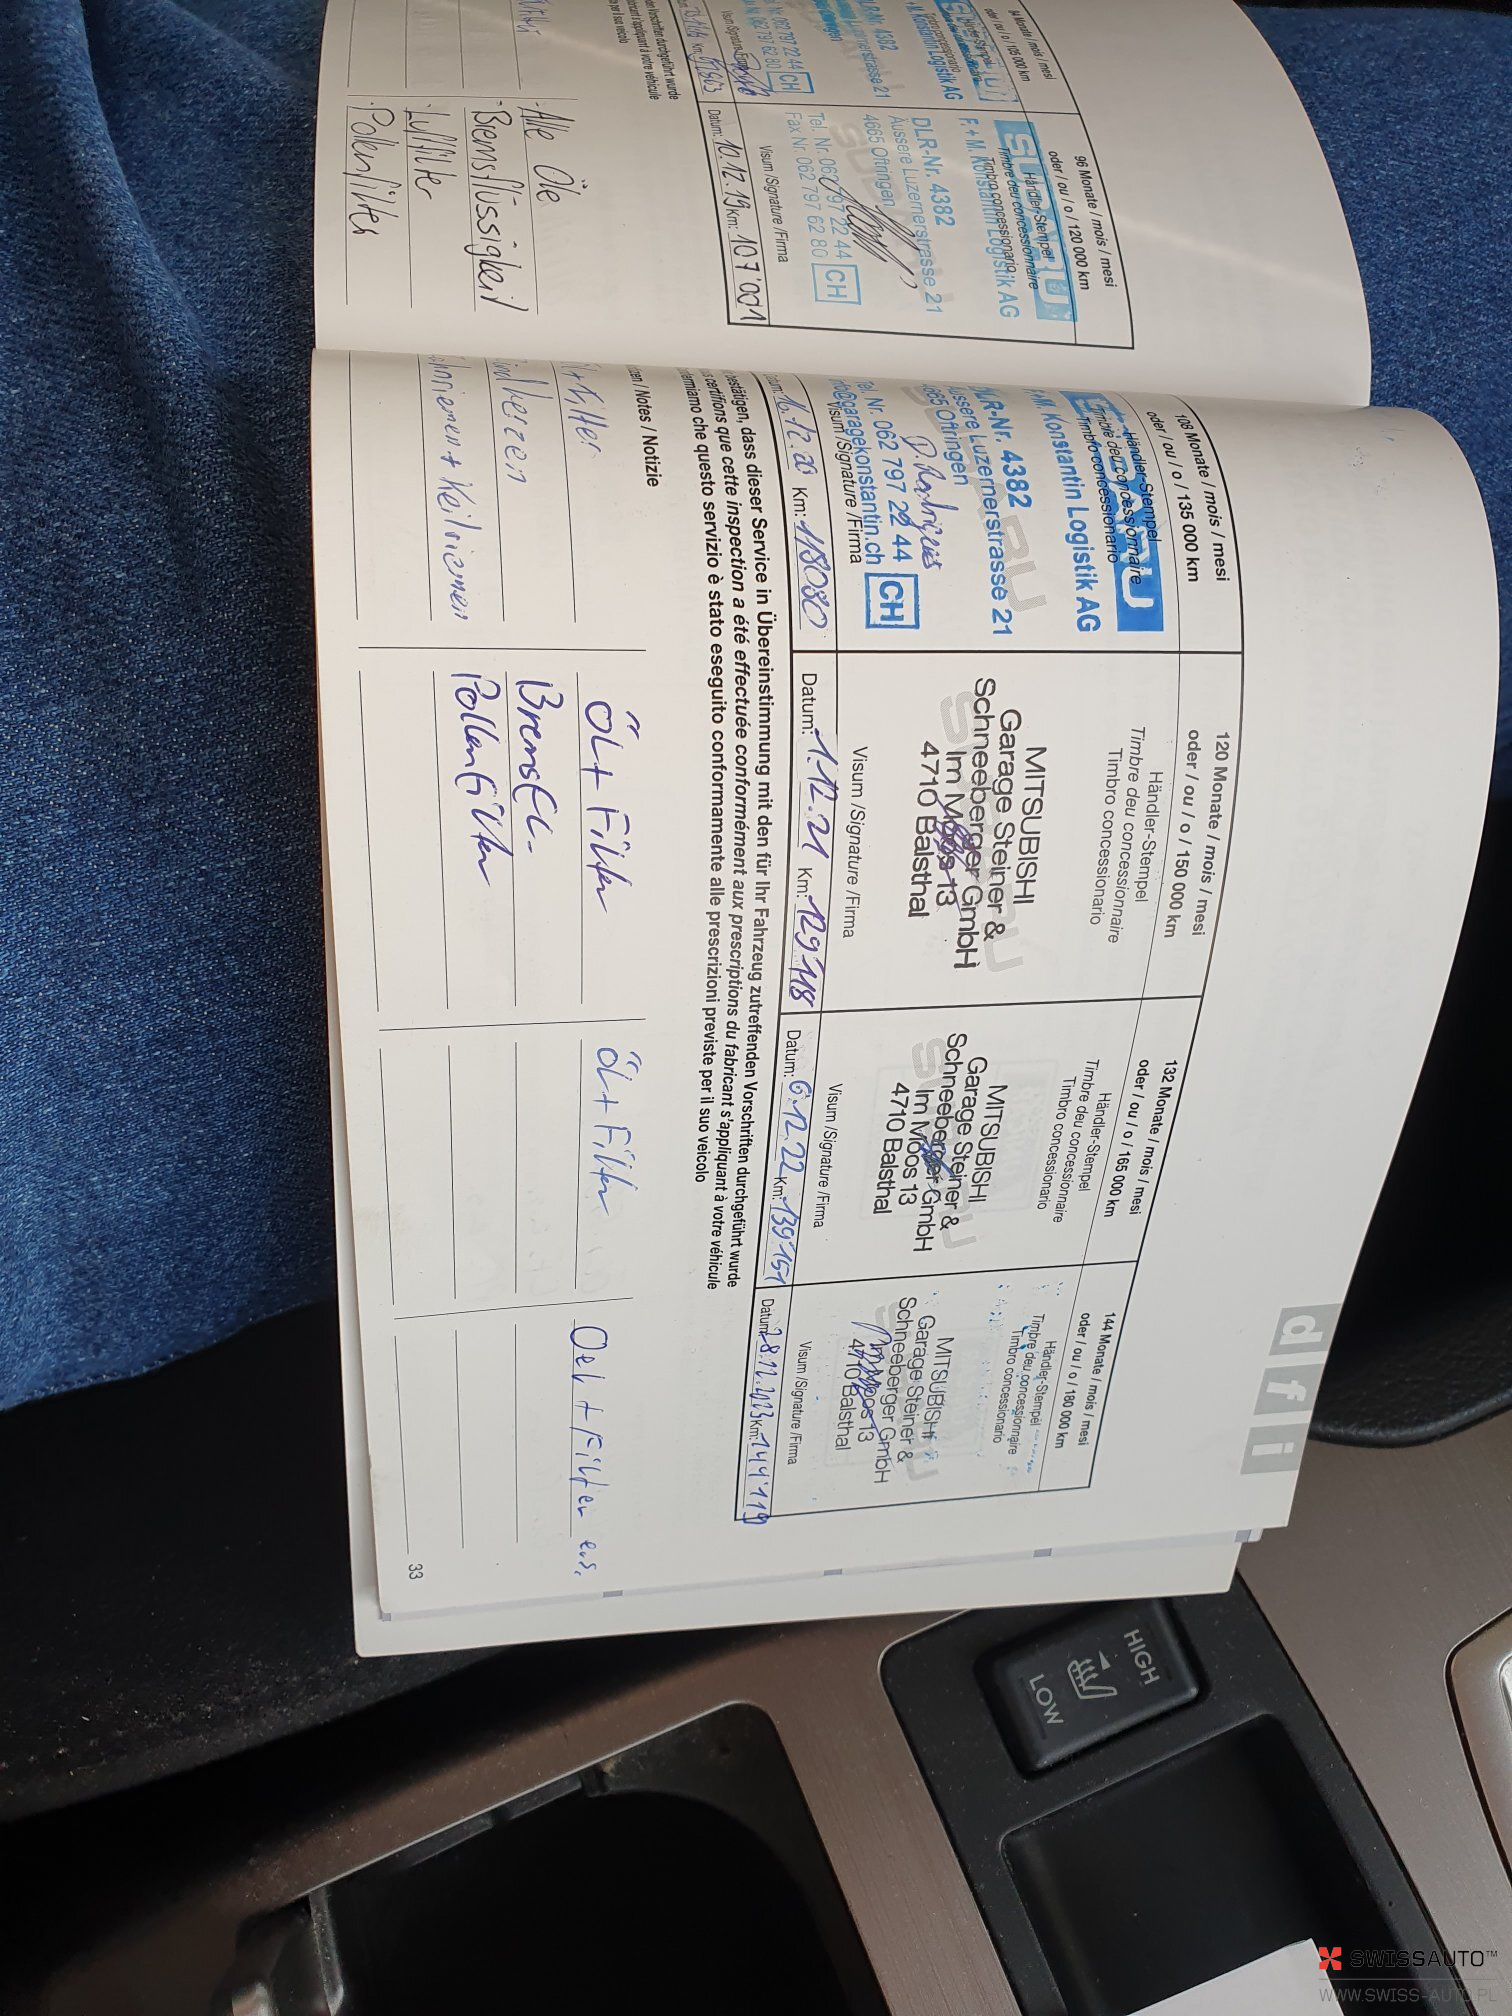 84 Monate / mois / mesi
oder / ou / o / 105 000 km
96 Monate / mois / mesi
oder / ou / o / 120 000 km
Händler-Stempel
Timbre deu concessionnaire
Timbro concessionario
SUBARU
F. + M. Konstantin Logistik AG
DLR-Nr. 4382
Äussere Luzernerstrasse 21
4665 Oftringen
Tel. Nr. 062 797 22 44
Fax Nr 062 797 62 80
CH
Visum /Signature /Firma
Datum: 10.12.19 Km: 107'001
Alle Öle
Bremsflüssigkeit
Luftfilter
Polenfilter
108 Monate / mois / mesi
oder / ou / o / 135 000 km
Händler-Stempel
Timbre deu concessionnaire
Timbro concessionario
M. Konstantin Logistik AG
DLR-Nr. 4382
Äussere Luzernerstrasse 21
4665 Oftringen
Tel. Nr. 062 797 22 44
info@garagekonstantin.ch
CH
Visum /Signature /Firma
16.12.20 Km: 118080
120 Monate / mois / mesi
oder / ou / o / 150 000 km
Händler-Stempel
Timbre deu concessionnaire
Timbro concessionario
MITSUBISHI
Garage Steiner &
Schneeberger GmbH
Im Moos 13
4710 Balsthal
Visum /Signature /Firma
Datum: 1.12.21 Km: 129'118
132 Monate / mois / mesi
oder / ou / o / 165 000 km
Händler-Stempel
Timbre deu concessionnaire
Timbro concessionario
MITSUBISHI
Garage Steiner &
Schneeberger GmbH
Im Moos 13
4710 Balsthal
Visum /Signature /Firma
Datum: 6.12.22 Km: 139'151
144 Monate / mois / mesi
oder / ou / o / 180 000 km
Händler-Stempel
Timbre deu concessionnaire
Timbro concessionario
MITSUBISHI
Garage Steiner &
Schneeberger GmbH
Im Moos 13
4710 Balsthal
Visum /Signature /Firma
Datum: 28.12.2023 Km: 144'119
bestätigen, dass dieser Service in Übereinstimmung mit den für Ihr Fahrzeug zutreffenden Vorschriften durchgeführt wurde
certifions que cette inspection a été effectuée conformément aux prescriptions du fabricant s'appliquant à votre véhicule
che questo servizio è stato eseguito conformamente alle prescrizioni previste per il suo veicolo
/ Notes / Notizie
+ Filter
+ Keilriemen
ÖL + Filter
Bremsfl.
Pollenfilter
ÖL + Filter
Oel + Filter ers.
33
d f i
HIGH
LOW
SWISSAUTO™
WWW.SWISS-AUTO.PL